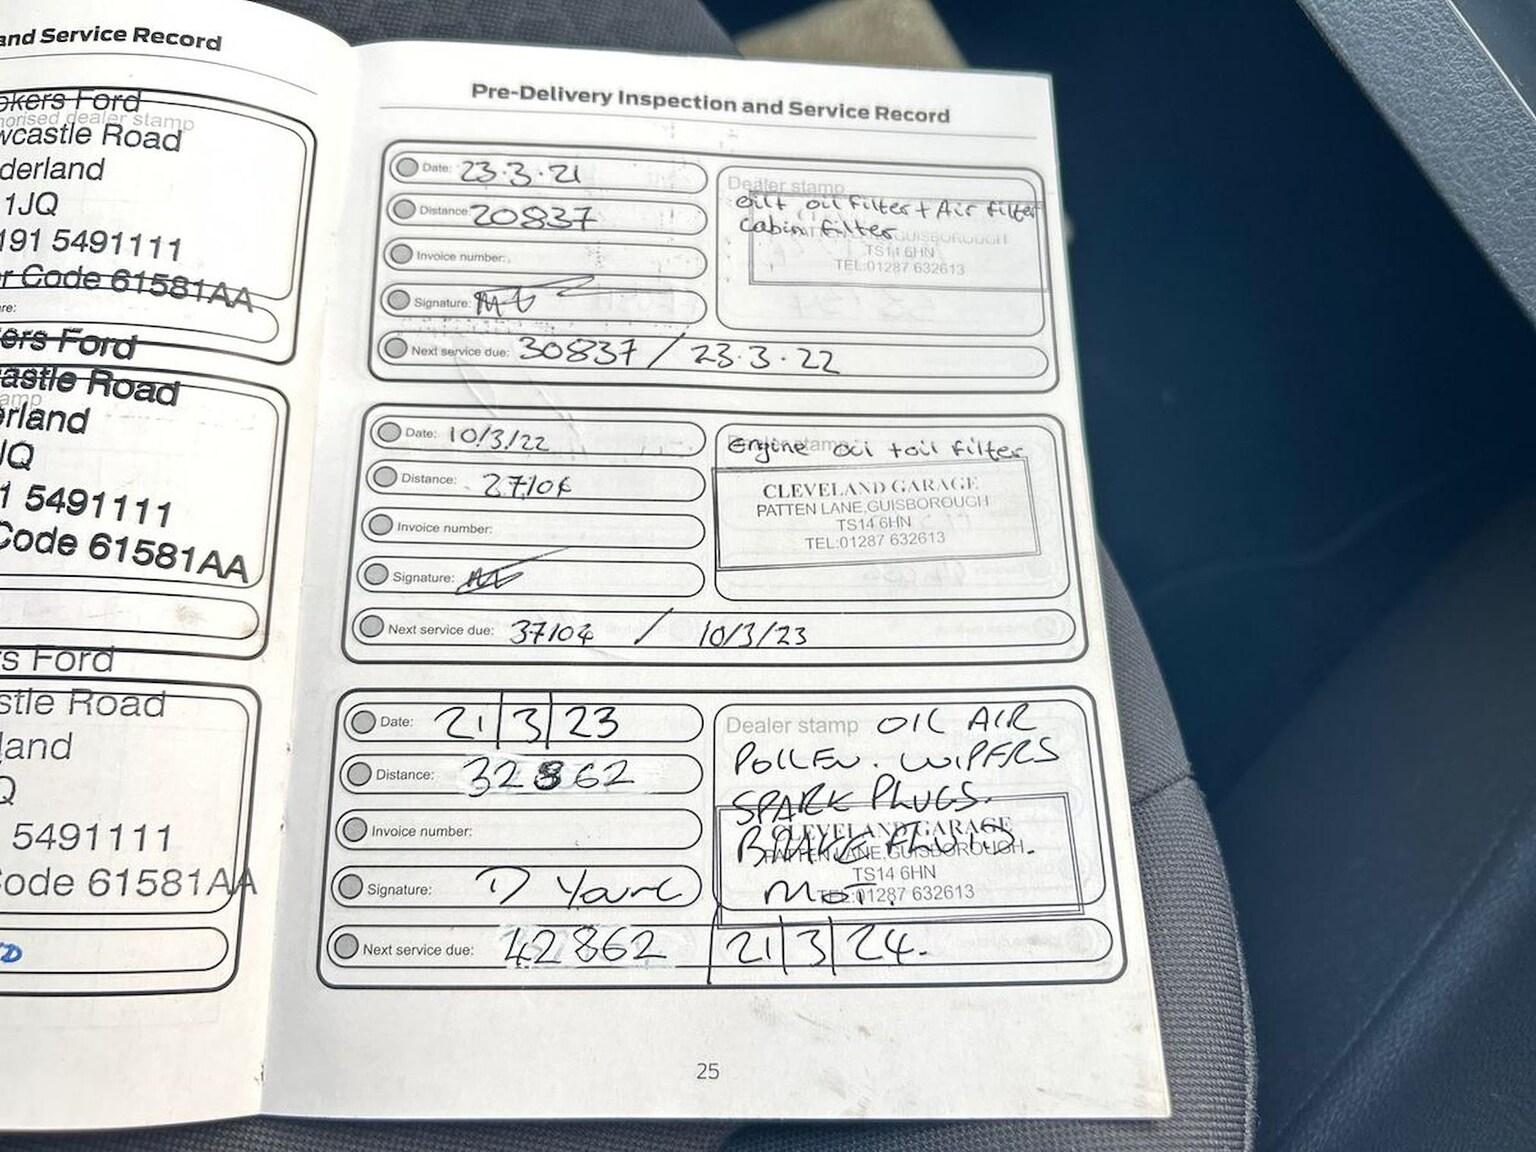 and Service Record
okers Ford
horised dealer stamp
wcastle Road
derland
1JQ
191 5491111
r Code 61581AA
re:
ers Ford
astle Road
amp
erland
JQ
1 5491111
Code 61581AA
s Ford
stle Road
land
Q
5491111
ode 61581AA
Pre-Delivery Inspection and Service Record
Date: 23.3.21
Distance: 20837
Invoice number:
Signature:
Next service due: 30837 / 23.3.22
Dealer stamp
oil + oil filter + Air filter
cabin filter
GUISBOROUGH
TS14 6HN
TEL:01287 632613
Date: 10/3/22
Distance: 27104
Invoice number:
Signature:
Next service due: 37104 / 10/3/23
Dealer stamp
Engine oil + oil filter
CLEVELAND GARAGE
PATTEN LANE,GUISBOROUGH
TS14 6HN
TEL:01287 632613
Date: 21/3/23
Distance: 32862
Invoice number:
Signature: D
Next service due: 42862 / 21/3/24.
Dealer stamp OIL AIR
POLLEN. WIPERS
SPARK PLUGS.
BRAKE FLUID.
MOT.
CLEVELAND GARAGE
PATTEN LANE,GUISBOROUGH
TS14 6HN
TEL:01287 632613
25